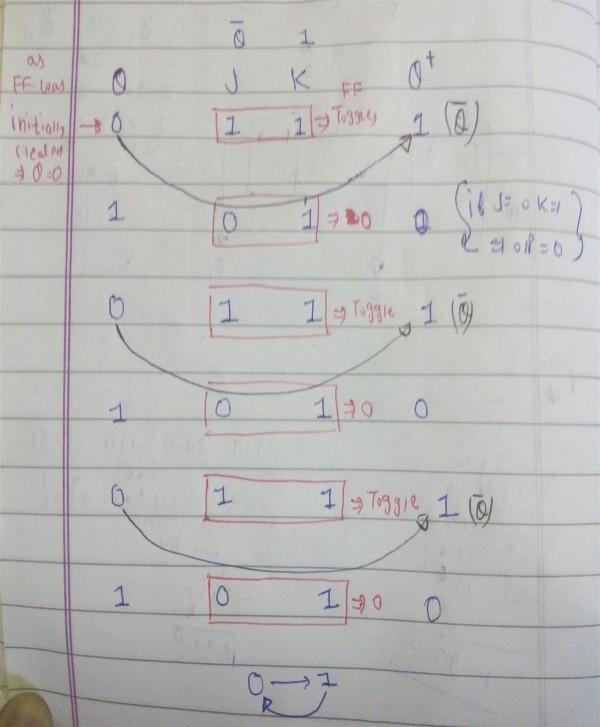 Q̅ 1
as
FF was
initially
cleared
⇒ Q=0
Q J K Q⁺
0 1 1 ⇒ FF Toggles 1 (Q̅)
1 0 1 ⇒ 0 0 (if J=0 K=1 ⇒ OP=0)
0 1 1 ⇒ Toggle 1 (Q̅)
1 0 1 ⇒ 0 0
0 1 1 ⇒ Toggle 1 (Q̅)
1 0 1 ⇒ 0 0
0 → 1